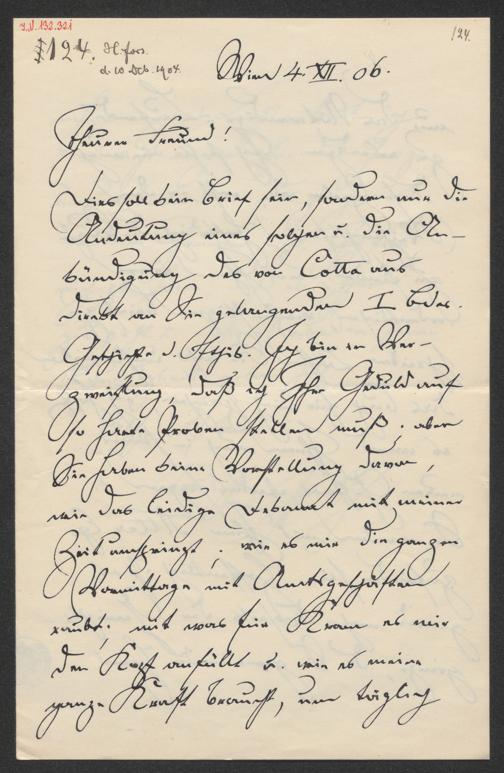 I.N. 132.321
124.
124.
Wien 4. XII. 06.
Theurer Freund!
Dies soll kein Brief sein, sondern nur die
Andeutung eines solchen u. die An-
kündigung des von Cotta aus
direkt an Sie gelangenden I Bdes.
Geschichte d. Ethik. Ich bin in Ver-
zweiflung, daß ich Ihre Geduld auf
so harte Proben stellen muß; aber
Sie haben keine Vorstellung davon,
wie das leidige Dekanat mit meiner
Zeit umspringt; wie es mir die ganzen
Vormittage mit Amtsgeschäften
raubt; mit was für Kram es mir
den Kopf anfüllt u. wie es meine
ganze Kraft braucht, um täglich